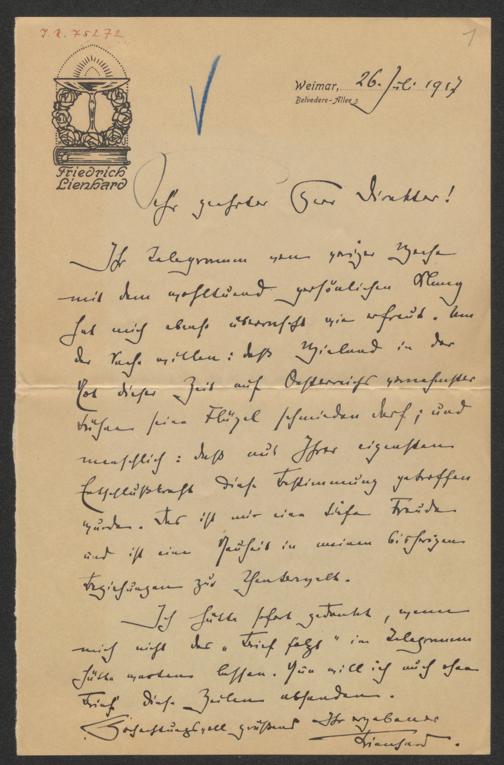 J.N. 75272
1
Friedrich
Lienhard
Weimar, 26. Juli 1917
Belvedere-Allee
Sehr geehrter Herr Direktor!
Ihr Telegramm von voriger Woche
mit dem wohltuend persönlichen Klang
hat mich ebenso überrascht wie erfreut. Um
der Sache willen: daß Wieland in der
Not dieser Zeit auf Oesterreichs vornehmster
Bühne seine Flügel schmieden darf; und
menschlich: daß aus Ihrer eigensten
Entschlußkraft diese Bestimmung getroffen
wurde. Das ist mir eine tiefe Freude
und ist eine Neuheit in meinen bisherigen
Beziehungen zur Theaterwelt.
Ich hätte sofort gedankt, wenn
mich nicht das „Brief folgt" im Telegramm
hätte warten lassen. Nun will ich auch ohne
Brief diese Zeilen absenden.
Hochachtungsvoll grüßend Ihr ergebener
Lienhard.